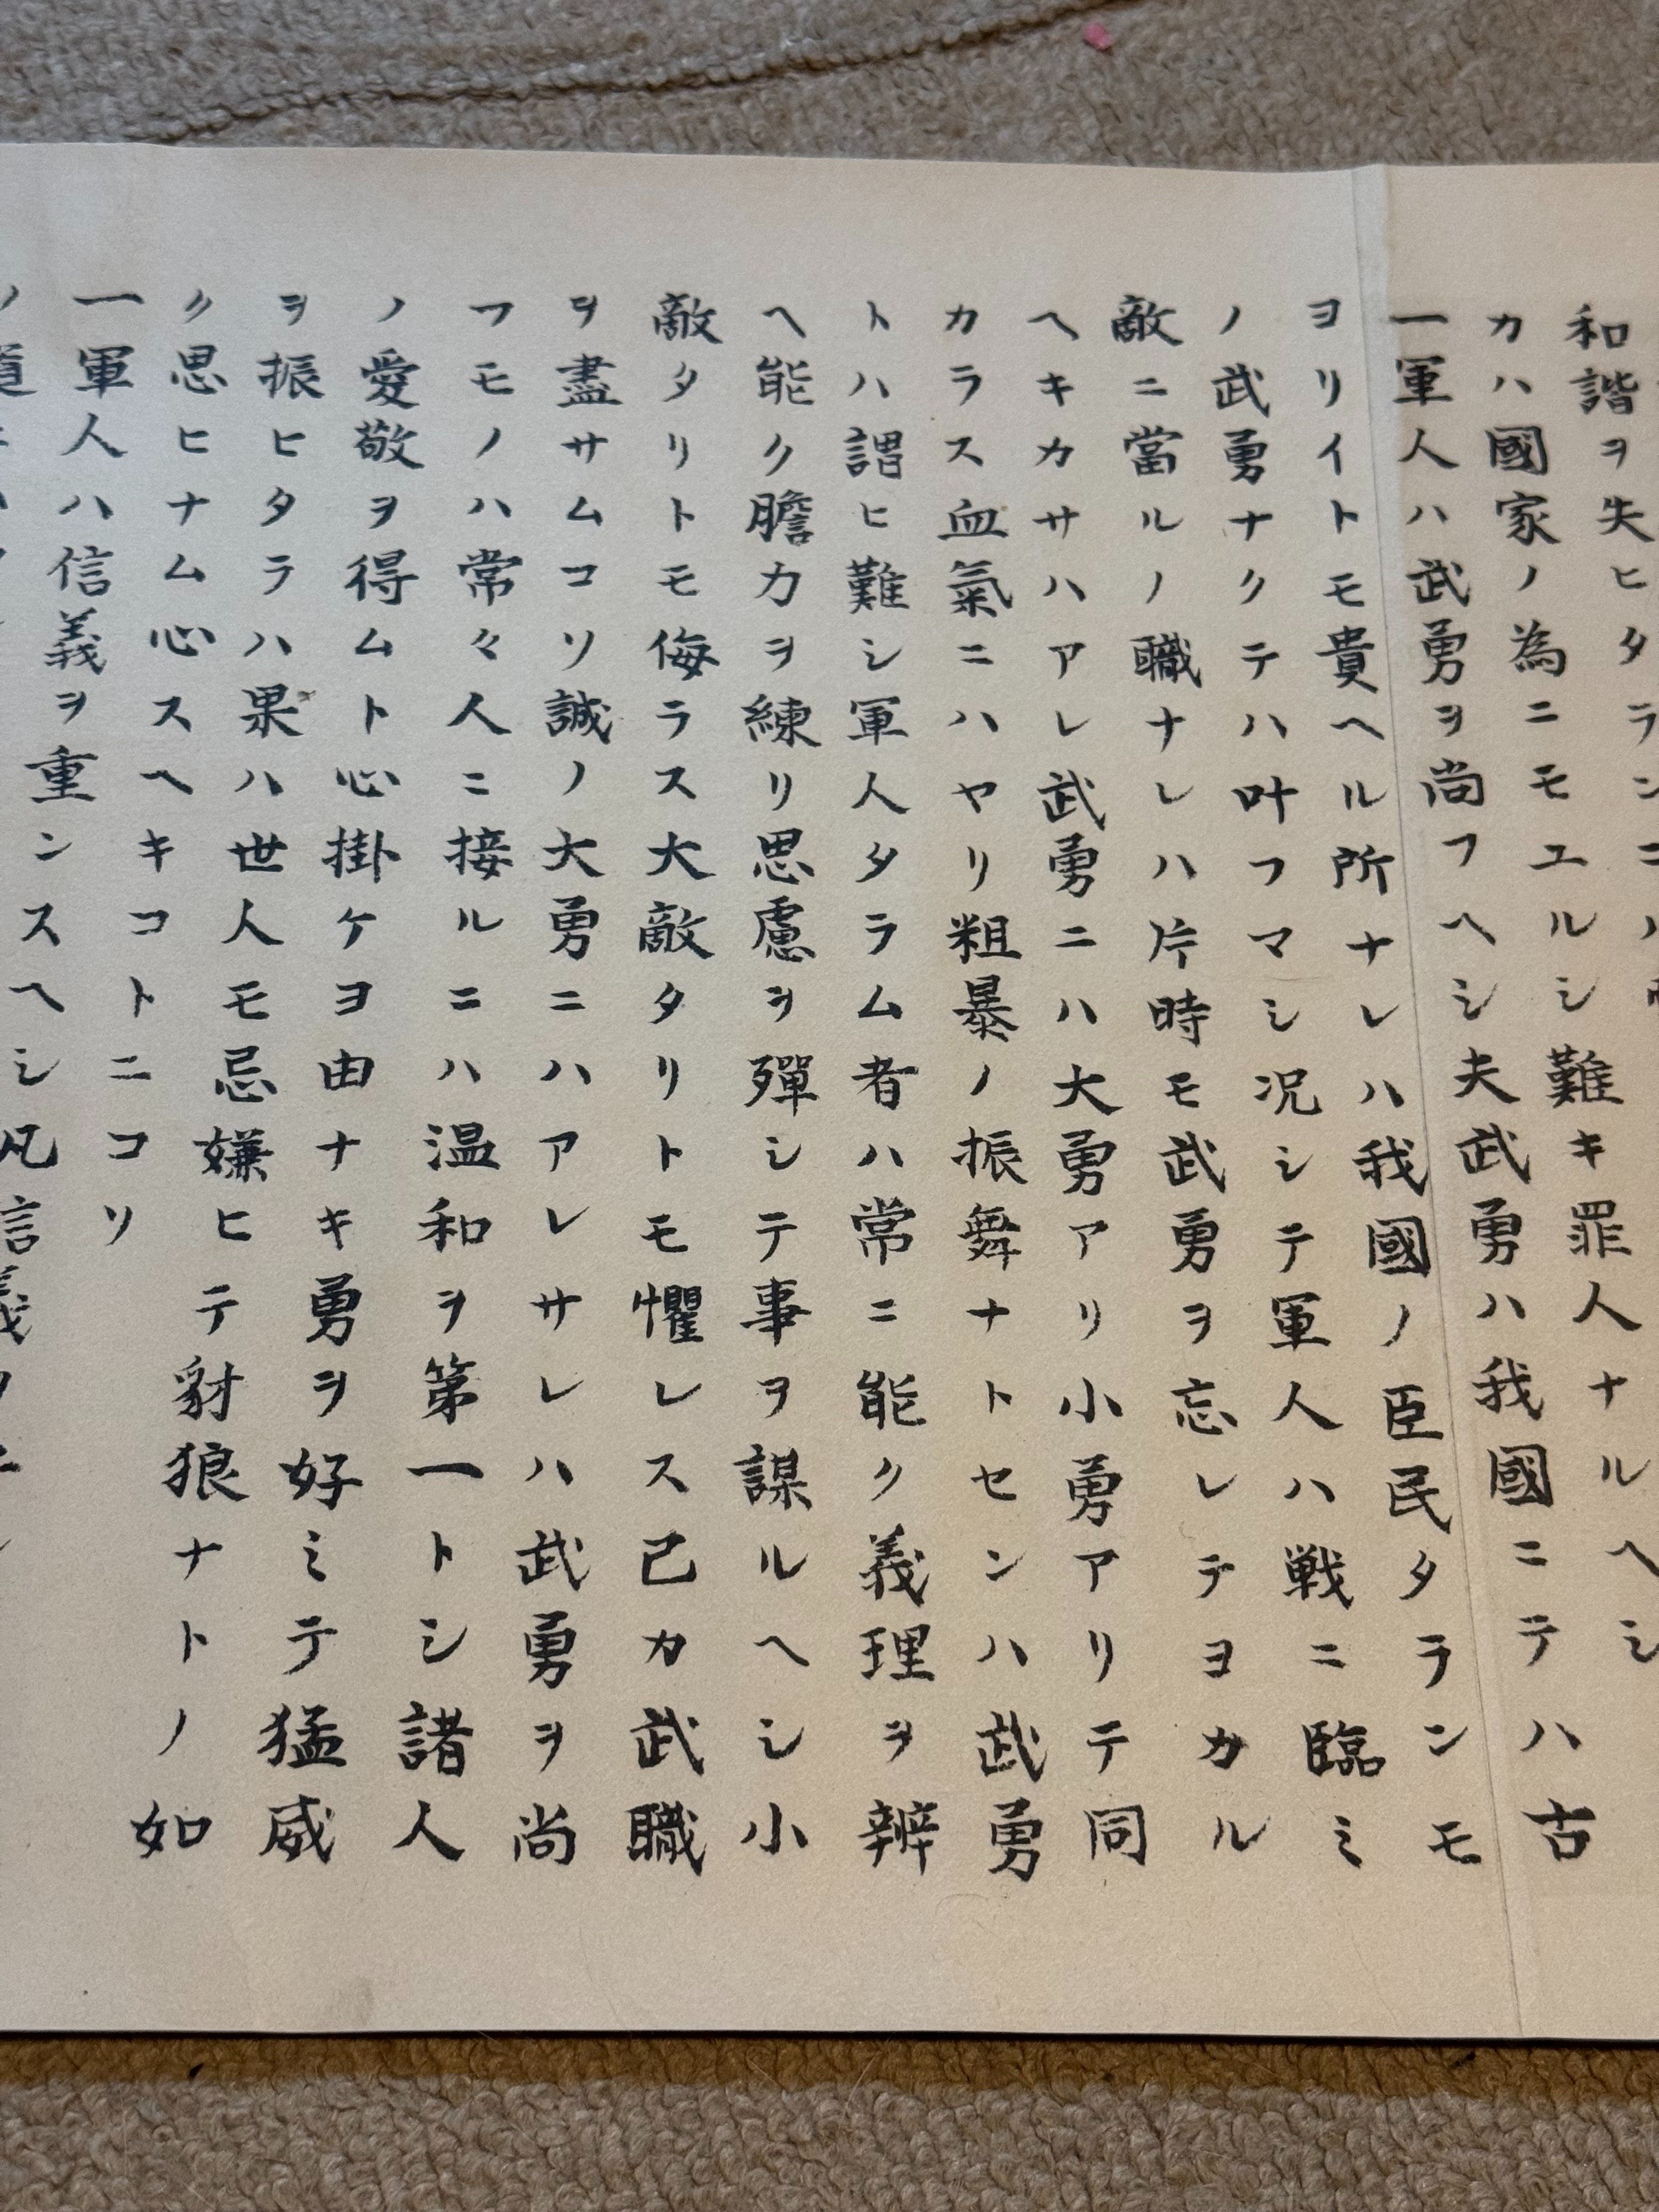 和諧ヲ失ヒタラン
カハ國家ノ為ニモユルシ難キ罪人ナルヘシ
一軍人ハ武勇ヲ尚フヘシ夫武勇ハ我國ニテハ古
ヨリイトモ貴ヘル所ナレハ我國ノ臣民タランモ
ノ武勇ナクテハ叶フマシ况シテ軍人ハ戦ニ臨ミ
敵ニ當ルノ職ナレハ片時モ武勇ヲ忘レテヨカル
ヘキカサハアレ武勇ニハ大勇アリ小勇アリテ同
カラス血氣ニハヤリ粗暴ノ振舞ナトセンハ武勇
トハ謂ヒ難シ軍人タラム者ハ常ニ能ク義理ヲ辨
ヘ能ク膽力ヲ練リ思慮ヲ殫シテ事ヲ謀ルヘシ小
敵タリトモ侮ラス大敵タリトモ懼レス己カ武職
ヲ盡サムコソ誠ノ大勇ニハアレサレハ武勇ヲ尚
フモノハ常々人ニ接ルニハ温和ヲ第一トシ諸人
ノ愛敬ヲ得ムト心掛ケヨ由ナキ勇ヲ好ミテ猛威
ヲ振ヒタラハ果ハ世人モ忌嫌ヒテ豺狼ナトノ如
ク思ヒナム心スヘキコトニコソ
一軍人ハ信義ヲ重ンスヘシ凡信義